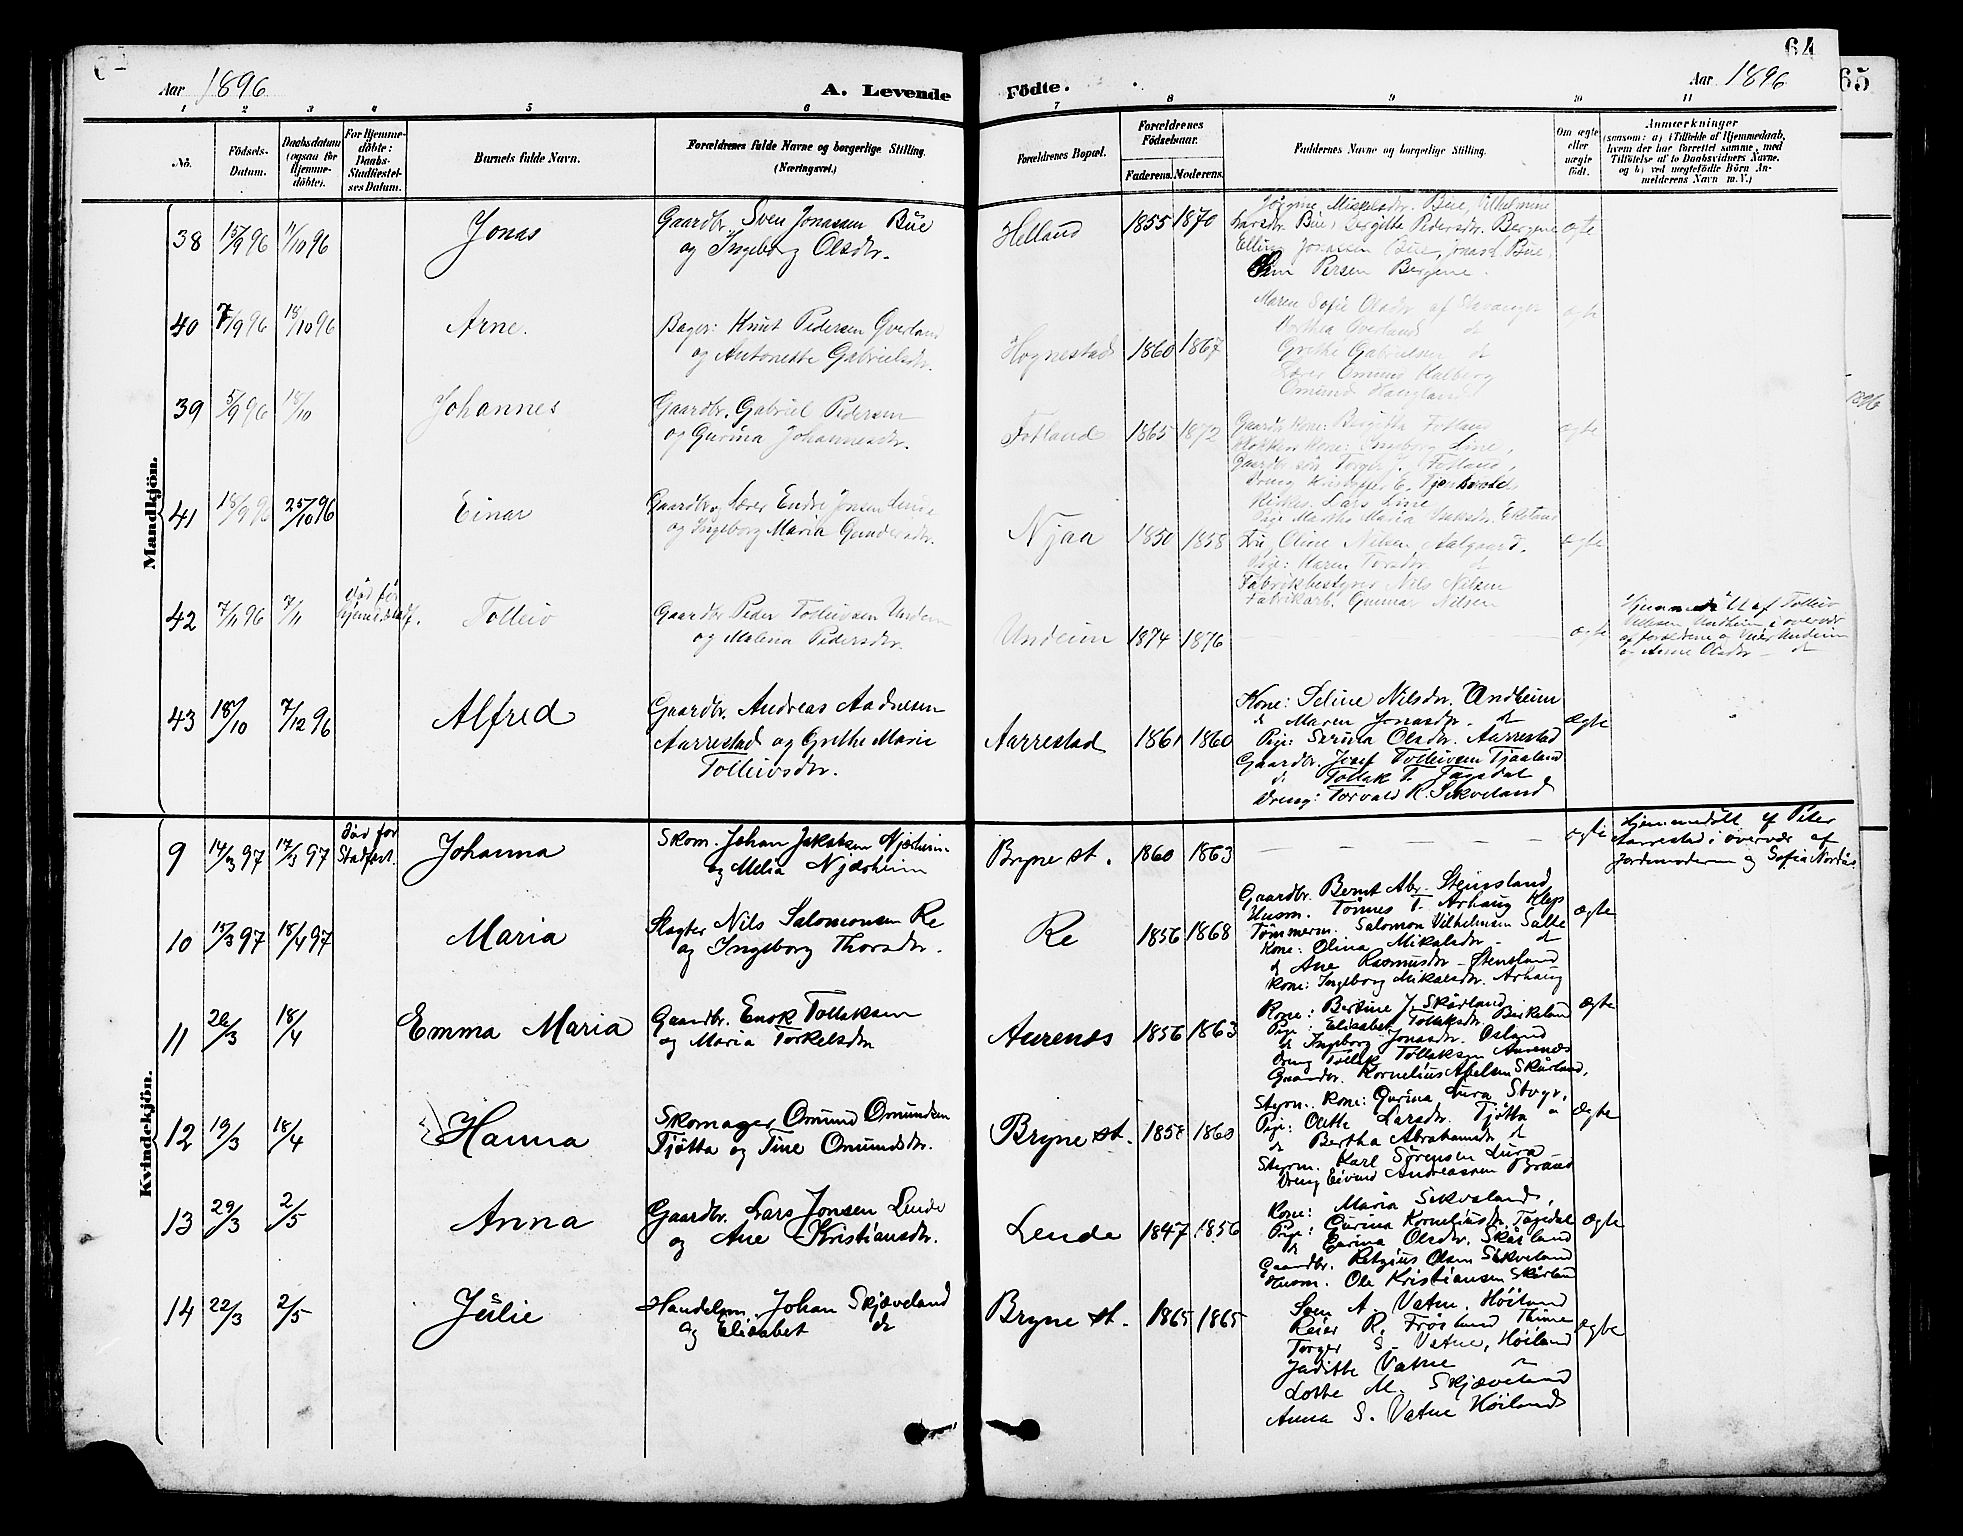 Aar 1896
A. Levende
Födte.
64
Aar 1896
65
1 2 3 4 5 6 7 8 9 10 11
No.
Födsels-
Datum.
Daabsdatum
(ogsaa for
Hjemme-
döbte).
For Hjemme-
döbte:
Daabs-
Stadfæstel-
ses Datum.
Barnets fulde Navn.
Forældrenes fulde Navne og borgerlige Stilling.
(Næringsvei.)
Forældrenes Bopæl.
Forældrenes
Födselsaar.
Faderens.
Moderens.
Faddernes Navne og borgerlige Stilling.
Om ægte
eller
uægte
födt.
Anmærkninger
(saasom: a) i Tilfælde af Hjemmedaab,
hvem der har forrettet samme, med
Tilföielse af to Daabsvidners Navne,
og b) ved uægtefödte Börn An-
melderens Navn m. V.)
Mandkjön.
38 15/9 96 11/10 96 Jonas
Gaardbr. Sven Jonassen Bue
og Ingeborg Olsdtr.
Helland 1855 1870
Mikkelsdtr. Bue, Vilhelmine
Larsdtr. Bue, Bergitte Pedersdtr. Bergene
Elling Jonassen Bue, Jonas Bue,
Persen Bergene.
ægte
40 7/9 96 18/10 96 Arne.
Bager: Knut Pedersen Qverland
og Antonette Gabrielsdtr.
Hognestad 1860 1867
Maren Sofie Olsdtr af Stavanger
Qverland dt
Grethe Gabrielsen dt
Lærer
Omund
ægte
39 5/9 96 18/10 Johannes
Gaardbr. Gabriel Pedersen
og Gurina Johannesdtr.
Fotland 1865 1872
Gaardb Kone: Birgitha Fotland
Kone: Ingeborg Line,
Gaardbr søn Torger J. Fotland,
Dreng
Lars Line
ægte
41 18/9 96 25/10 96 Einar
Gaardbr. Lærer Endre Jonsen
og Ingeborg Maria Gundersdtr.
Njaa 1850 1858
Pige Martha Maria
Fru Oline Nilsen Aalgaard.
Pige: Karen Torsdtr dt
Fabrikbestyrer Nils Nilsen
Fabrikarb. Gunnar Nilsen
ægte
42 7/11 96 7/11
død før
Tolleiv
Gaardbr Peder Tolleivsen Undeim
og Malena Pedersdtr.
Undeim 1874 1876
ægte
Hjemmedøbt af Tolleiv
i overvær
af forældrene og Undeim
og Anne Olsdtr – dt
43 18/10 7/12 96 Alfred
Gaardbr. Andreas Aadnesen
Aarrestad og Grethe Marie
Tolleivsdtr.
Aarrestad 1861 1860
Kone: Seline Nilsdtr. Undheim
d Maren Jonasdtr. dt
Pige: Serina Olsdtr. Aarrestad
Gaardbr. Josef Tolleivsen Tjaaland
d. Tollak T. Fagedal
Dreng: Torvald R. Sikveland
Ægte
Kvindekjön.
9 14/3 97 17/3 97
død før
Stadfæst.
Johanna
Skom. Johan Jakobsen Njærheim
og Melia Njærheim
Bryne st. 1860 1863
ægte
Hjemmedøbt af Peter
Aarrestad i overvær af
Jordemoderen og Sofia Nordås
10 15/3 97 18/4 97 Maria
Slagter Nils Salomonsen Re
og Ingeborg Thorsdtr.
Re 1856 1868
Gaardbr. Bernt Abr. Stensland
Husm. Tönnes T. Arhaug Klep
Tömmerm. Salomon Vilhelmsen Salte
Kone: Olina Mikalsdtr – dt
d Ane Rasmusdtr – Stensland
Kone: Ingeborg Mikalsdtr. Arhaug
Ægte
11 26/3 18/4 Emma Maria
Gaardbr. Enok Tollaksen
og Maria Torkelsdtr
Aurenes 1856 1863
Kone: Bertine J. Skårland
Pige: Elisabet Tollaksdtr Birkeland
d Ingeborg Jonasdtr. Osland
Dreng Tollak Tollaksen Aurenes
Gaardbr. Kornelius Abelsen Skårland,
Ægte
12 19/3 18/4 Hanna
Skomager Omund Omundsen
Tjötta og Tine Omundsdtr.
Bryne st. 1858 1860
Styrm. Kone: Gurina Lura Stvgr.
Pige: Oette Larsdtr. Tjötta
d Bertha Abrahamsdtr dt
Styrm. Karl Sörensen Lura –
Dreng Eivind Andreassen Braud
Ægte
13 29/3 2/5 Anna
Gaardbr. Lars Jonsen Lende
og Ane Kristiansdtr.
Lende 1847 1856
Kone: Maria Sikveland,
Pige: Gurina Korneliusdtr. Fagedal
d Gurina Olsdtr. Skårland
Gaardbr. Retzius Olsen Sikveland
Husm. Ole Kristiansen Skårland
Ægte
14 22/3 2/5 Julie
Handelsm. Johan Skjæveland
og Elisabet dt
Bryne st. 1865 1865
Sven A. Vatne. Höiland
Reier R. Fröslund Thime
Torger S. Vatne, Höiland
Juditte Vatne
Lotte M. Skjæveland
Anna S. Vatne Höiland
Ægte
1896